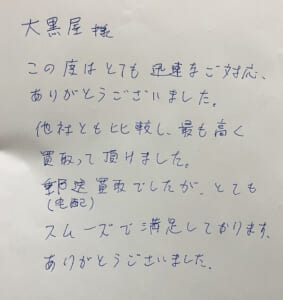 大黒屋 様
この度はとても迅速なご対応、
ありがとうございました。
他社とも比較し、最も高く
買取って頂けました。
郵送買取でしたが、とても
(宅配)
スムーズで満足しております。
ありがとうございました。